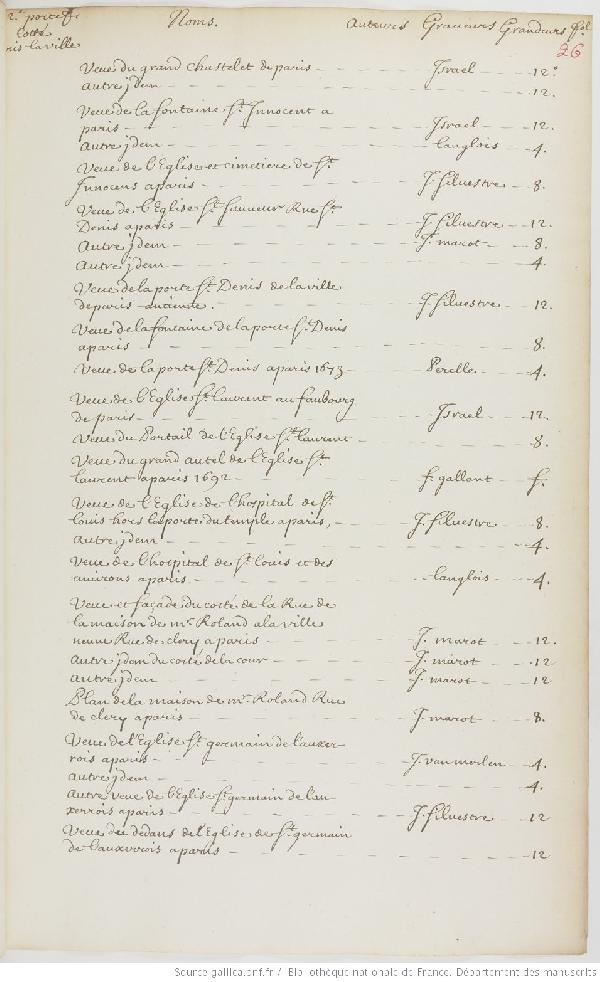 2e. portef.
cotté
Noms. Auteurs Graueurs Grandeurs fol
ris-la-ville
26
Veue du grand chastelet de paris - Jsrael - 12°
autre jdem - 12.
Veue de la fontaine St. Jnnocent a
paris - Jsrael - 12.
autre jdem - langlois - 4.
Veue de l'Eglise et cimetiere de St.
Jnnocens a paris - J. siluestre - 8.
Veue de l'Eglise St. sauueur Rue St.
Denis a paris - J. siluestre - 12.
Autre jdem - J. marot - 8.
Autre jdem - 4.
Veue de la porte St. Denis de la ville
de paris - J. siluestre - 12.
Veue de la fontaine de la porte St. Denis
a paris - 8.
Veue de la porte St. Denis a paris 1673 - Perelle - 4.
Veue de l'Eglise St. laurent au faubourg
de paris - Jsrael - 12.
Veue du Portail de l'Eglise St. laurent - 8.
Veue du grand autel de l'Eglise St.
laurent a paris 1692 - f. gallant - f.
Veue de l'Eglise de l'hospital de St.
louis hors la porte du temple a paris, - J. siluestre - 8.
autre jdem - 4.
Veue de l'hospital de St. louis et des
enuirons a paris - langlois - 4.
Veue et façade du costé de la Rue de
la maison de mr. Roland a la ville
neuue Rue de clery a paris - J. marot - 12.
autre jdem du costé de la cour - J. marot - 12
autre jdem - J. marot - 12
Plan de la maison de mr. Roland Rue
de clery a paris - J. marot - 8.
Veue de l'Eglise St. germain de l'auxer-
rois a paris - J. van merlen - 4.
autre jdem - 4.
Autre veue de l'Eglise St. germain de l'au
xerrois a paris - J. siluestre - 12
Veue du dedans de l'Eglise de St. germain
de l'auxerrois a paris - 12
Source gallica.bnf.fr / Bibliothèque nationale de France. Département des manuscrits